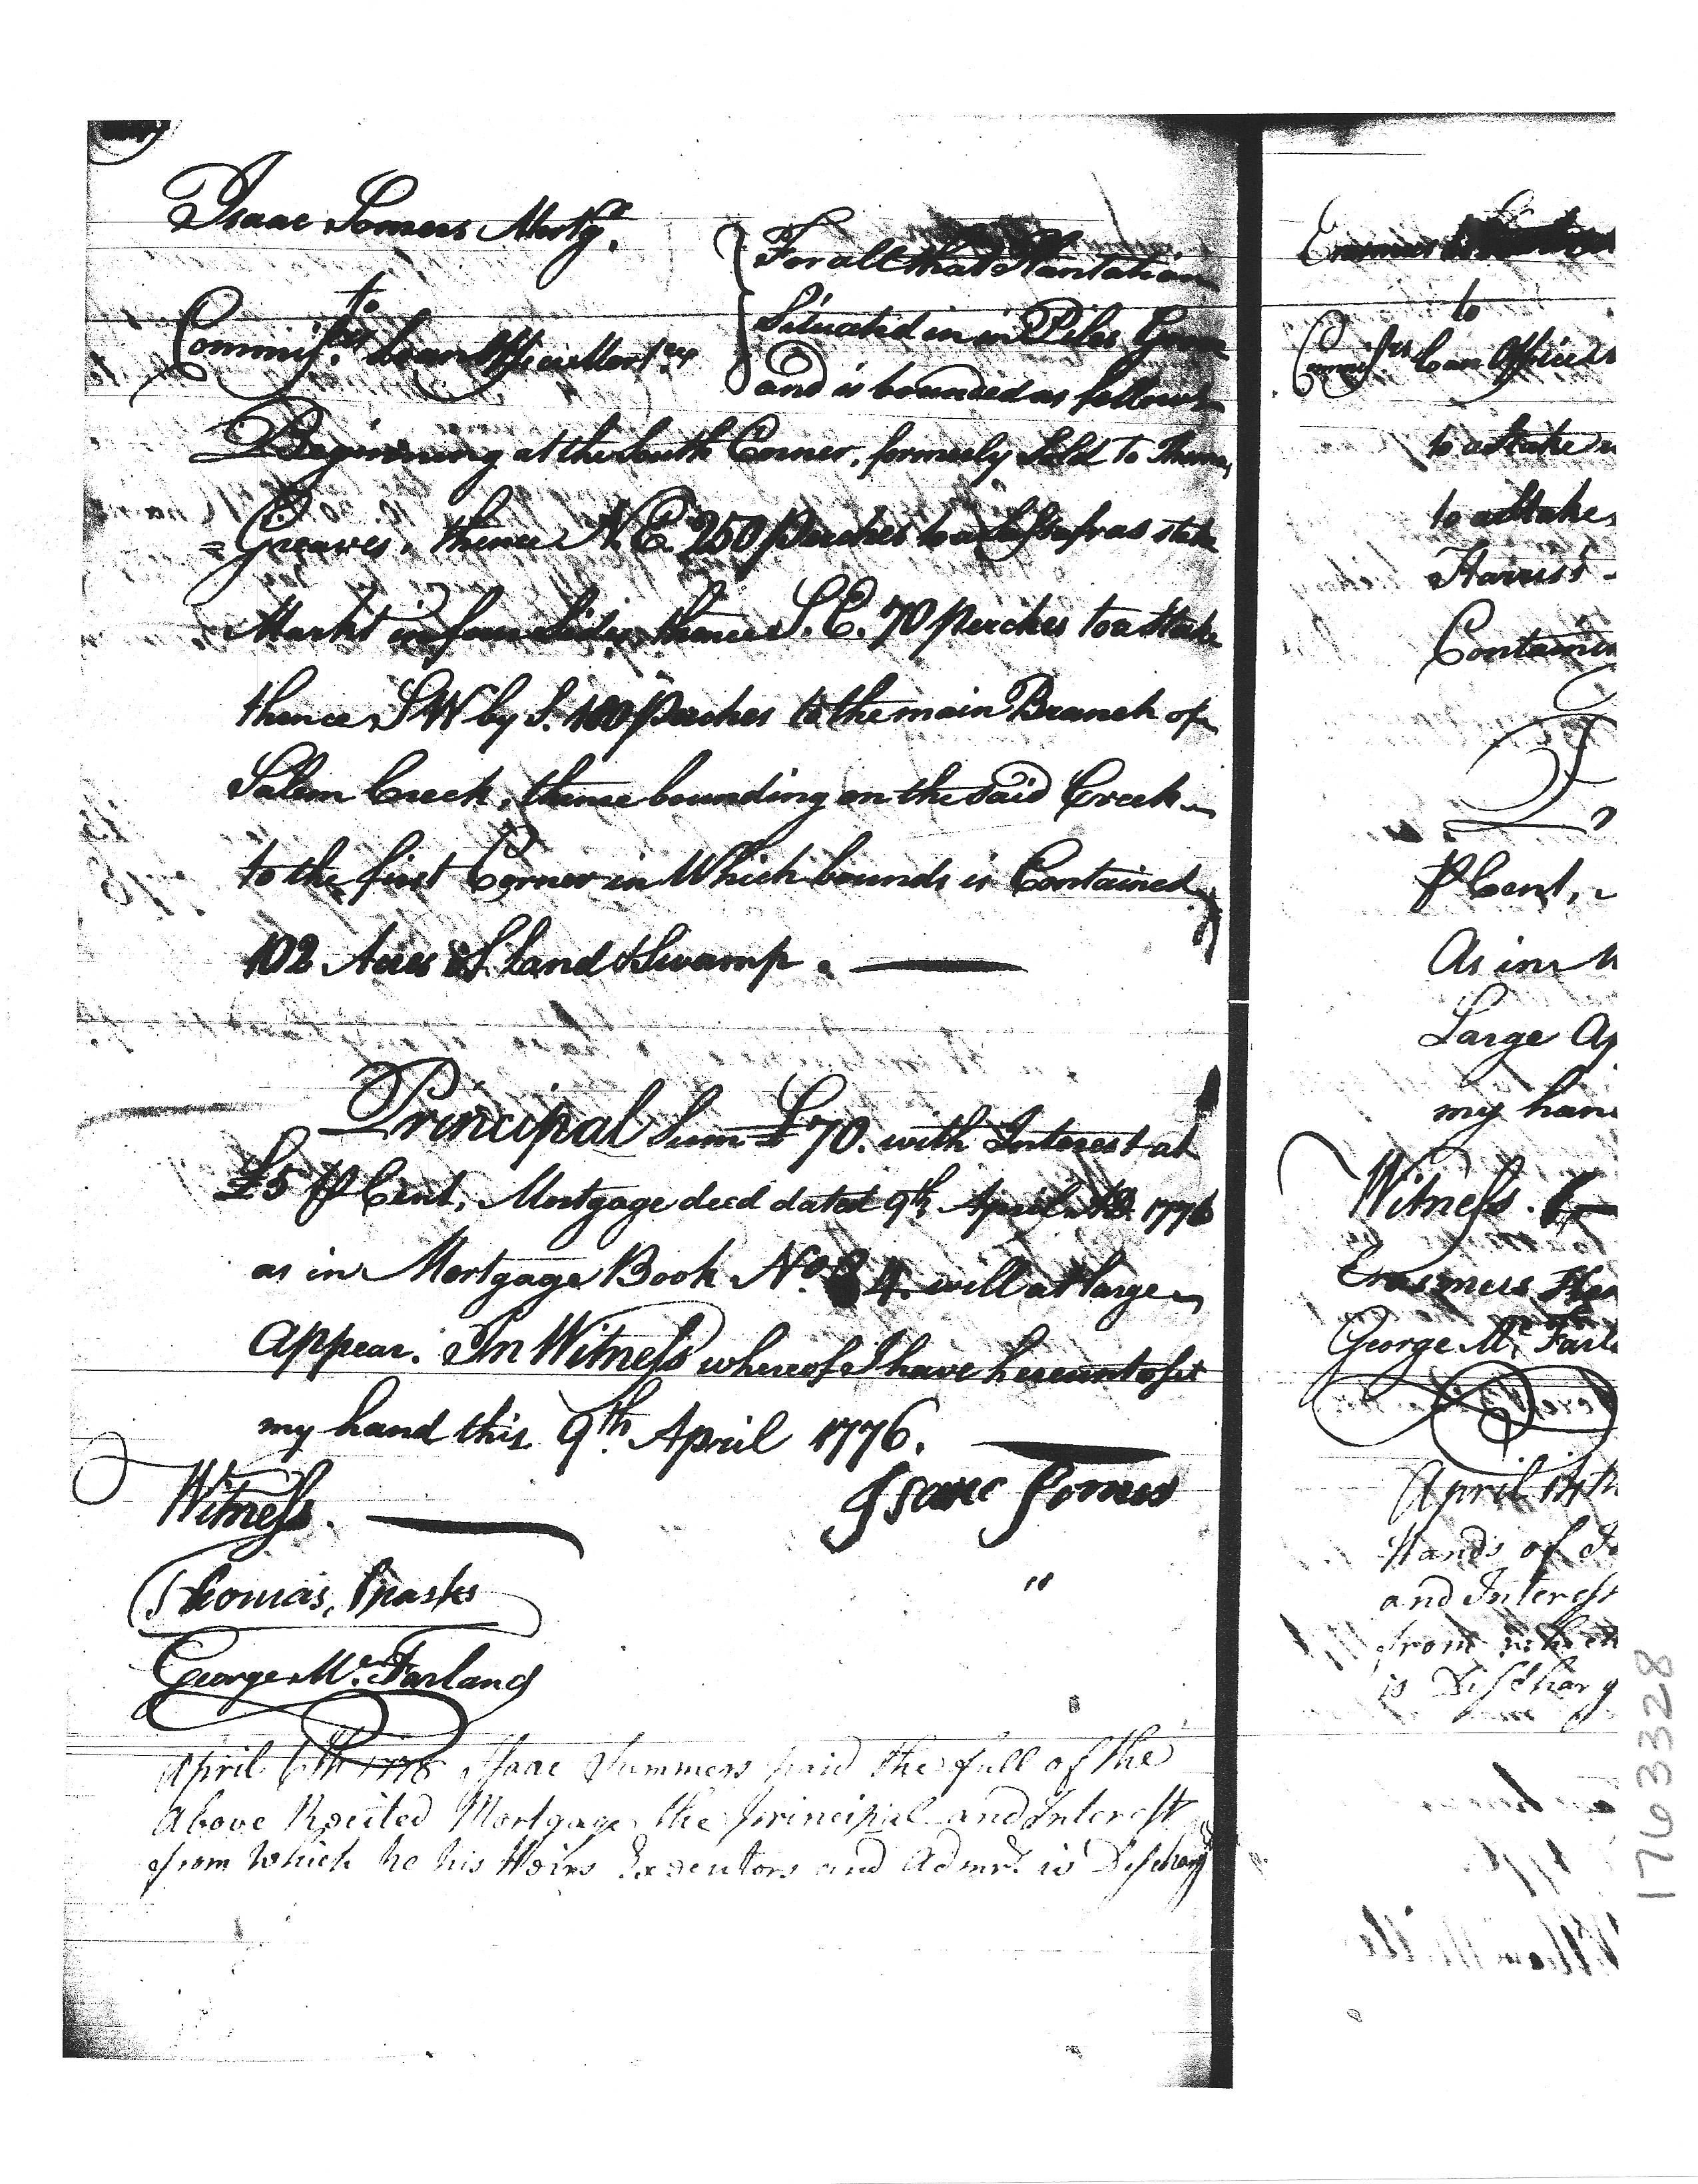 Isaac Somers Mortgr.
to
Commissrs. Loan Office Mortees
For all that Plantation
Situated in in Piles Grove
and is bounded as follows
Beginning at the South Corner, formerly Sold to Thomas
Greaves, thence N.E. 250 perches to a Sassafras stake
Markt in four Sides, thence S.E. 70 perches to a Stake
thence SW by S. 180 perches to the main Branch of
Salem Creek, thence bounding on the said Creek
to the first Corner in Which bounds is Contained
102 Acres of Land & Swamp.
Principal Sum £70. with Interest at
£5 ⅌ Cent, Mortgage deed dated 9th April AD. 1776
as in Mortgage Book No. 4. will at large
appear. In Witness whereof I have hereunto set
my hand this 9th April 1776.
Witness.
Isaac Somers
Thomas Sparks
George Mc. Farland
April 1778 Isaac Summers paid the full of the
above Recited Mortgage the principal and Interest
from which he his Heirs Executors and Admrs. is Discharg
Erasmus
to
Commissrs Loan Officers
to a Stake
to a Stake
Harris's
Containin
⅌ Cent,
As in
Large Ap
my han
Witness.
Erasmus
George Mc. Farl
April
Hands of
and Interest
from which
is Discharg
1763328